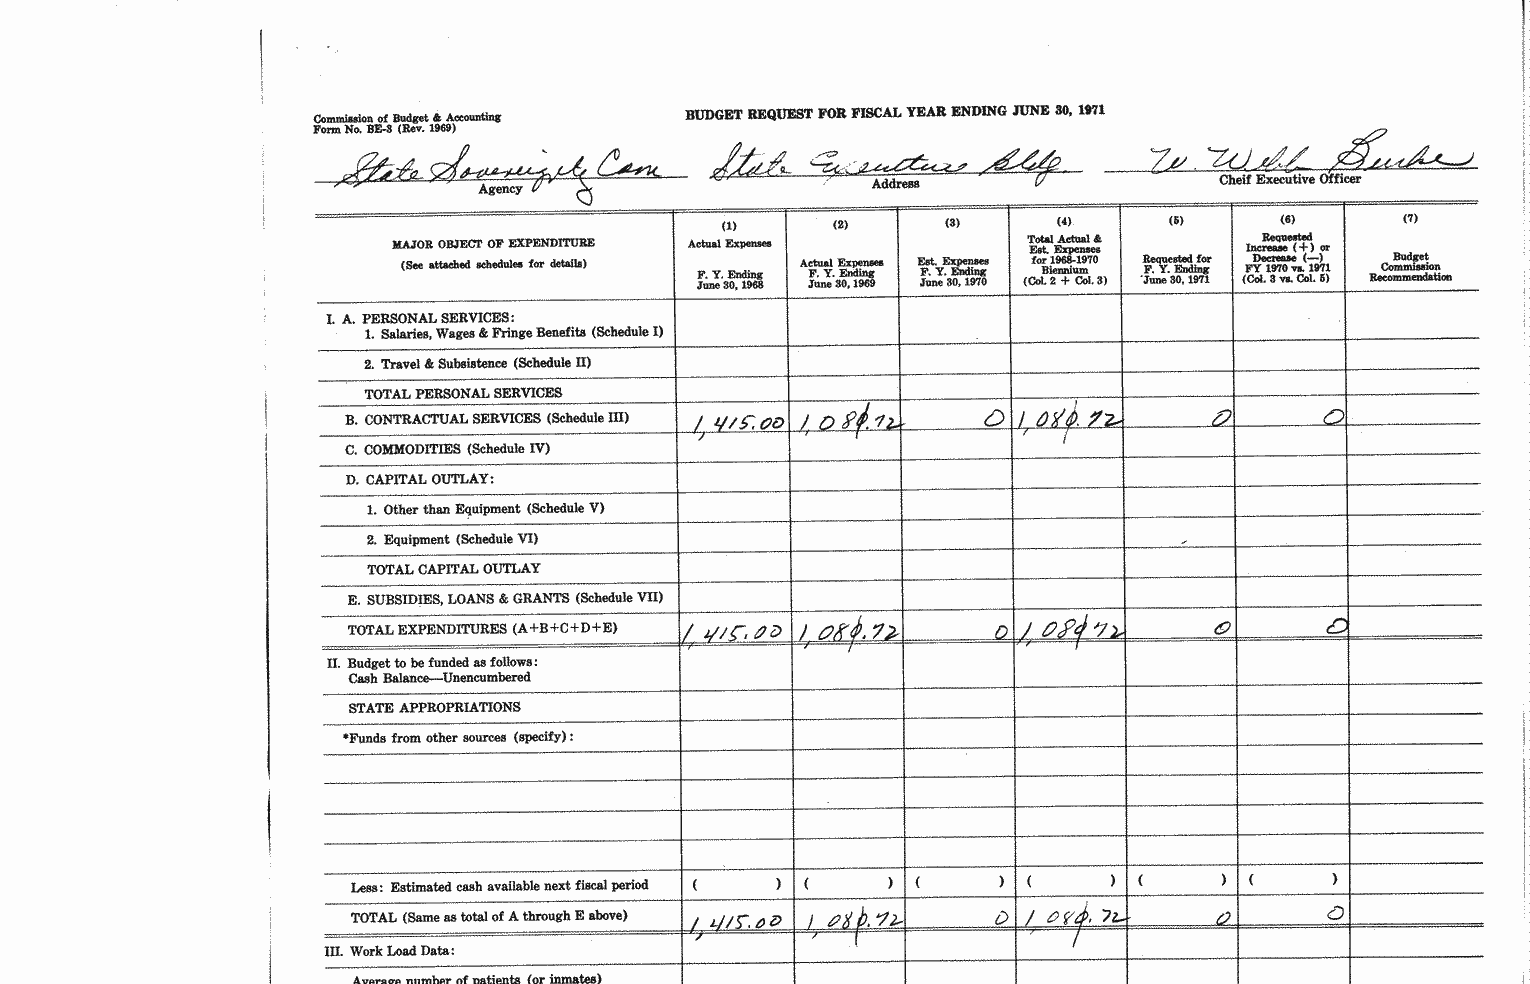 BUDGET REQUEST FOR FISCAL YEAR ENDING JUNE 30, 1971
Commission of Budget & Accounting
Form No. BE-3 (Rev. 1969)
State Sovereignty Com State Executive Bldg. W. Webb Burke
Agency Address Cheif Executive Officer
MAJOR OBJECT OF EXPENDITURE
(See attached schedules for details)
(1)
Actual Expenses
F. Y. Ending
June 30, 1968
(2)
Actual Expenses
F. Y. Ending
June 30, 1969
(3)
Est. Expenses
F. Y. Ending
June 30, 1970
(4)
Total Actual &
Est. Expenses
for 1968-1970
Biennium
(Col. 2 + Col. 3)
(5)
Requested for
F. Y. Ending
June 30, 1971
(6)
Requested
Increase (+) or
Decrease (—)
FY 1970 vs. 1971
(Col. 3 vs. Col. 5)
(7)
Budget
Commission
Recommendation
I. A. PERSONAL SERVICES:
1. Salaries, Wages & Fringe Benefits (Schedule I)
2. Travel & Subsistence (Schedule II)
TOTAL PERSONAL SERVICES
B. CONTRACTUAL SERVICES (Schedule III) 1,415.00 0 0 0
C. COMMODITIES (Schedule IV)
D. CAPITAL OUTLAY:
1. Other than Equipment (Schedule V)
2. Equipment (Schedule VI)
TOTAL CAPITAL OUTLAY
E. SUBSIDIES, LOANS & GRANTS (Schedule VII)
TOTAL EXPENDITURES (A+B+C+D+E) 1,415.00 0 0 0
II. Budget to be funded as follows:
Cash Balance—Unencumbered
STATE APPROPRIATIONS
*Funds from other sources (specify):
Less: Estimated cash available next fiscal period ( ) ( ) ( ) ( ) ( ) ( )
TOTAL (Same as total of A through E above) 1,415.00 0 0 0
III. Work Load Data:
Average number of patients (or inmates)